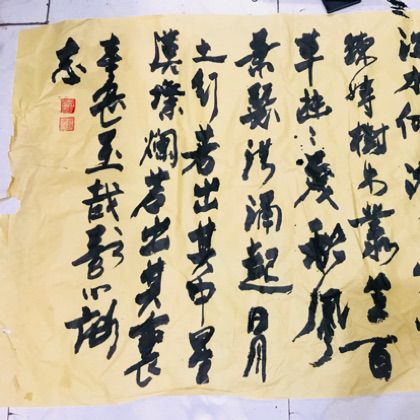 水何
竦峙樹木叢生百
草豐茂秋風
蕭瑟洪涌起日月
之行若出其中星
漢燦爛若出其裏
幸甚至哉歌以詠
志